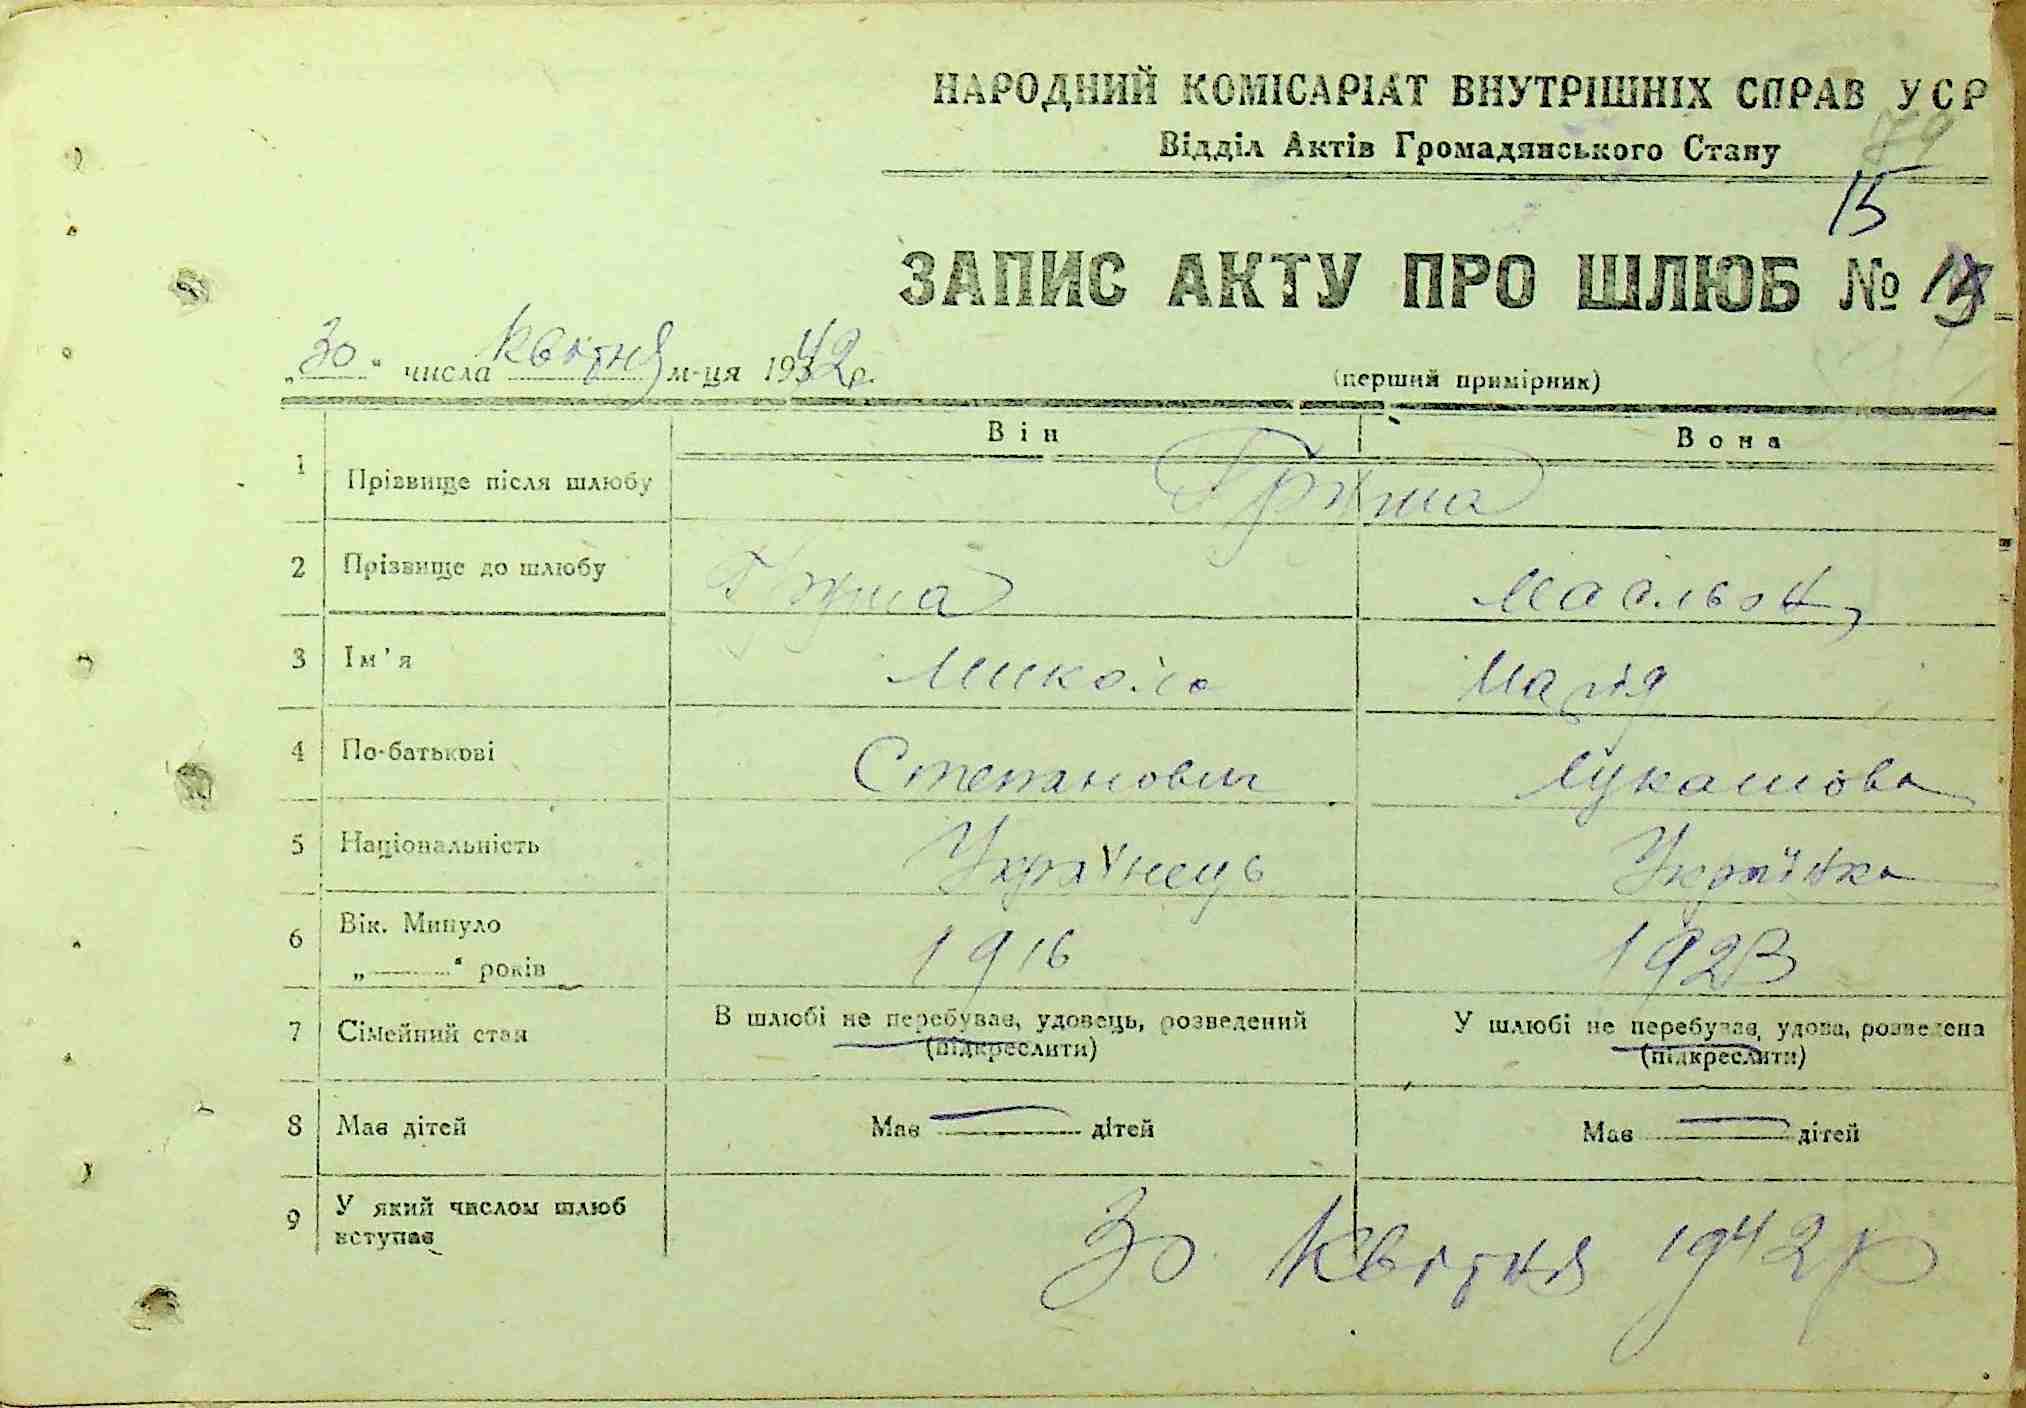 НАРОДНИЙ КОМІСАРІАТ ВНУТРІШНІХ СПРАВ УСР
Відділ Актів Громадянського Стану
79
15
ЗАПИС АКТУ ПРО ШЛЮБ №
„30" числа квітня м-ця 1942 р.
(перший примірник)
Він Вона
1 Прізвище після шлюбу Груша
2 Прізвище до шлюбу Груша
3 Ім'я Микола Марія
4 По-батькові Степанович Лукашова
5 Національність Українець Українка
6 Вік. Минуло „ " років 1916 1923
7 Сімейний стан В шлюбі не перебуває, удовець, розведений (підкреслити) У шлюбі не перебуває, удова, розведена (підкреслити)
8 Має дітей Має — дітей Має — дітей
9 У який числом шлюб вступає 30 квітня 1942 р